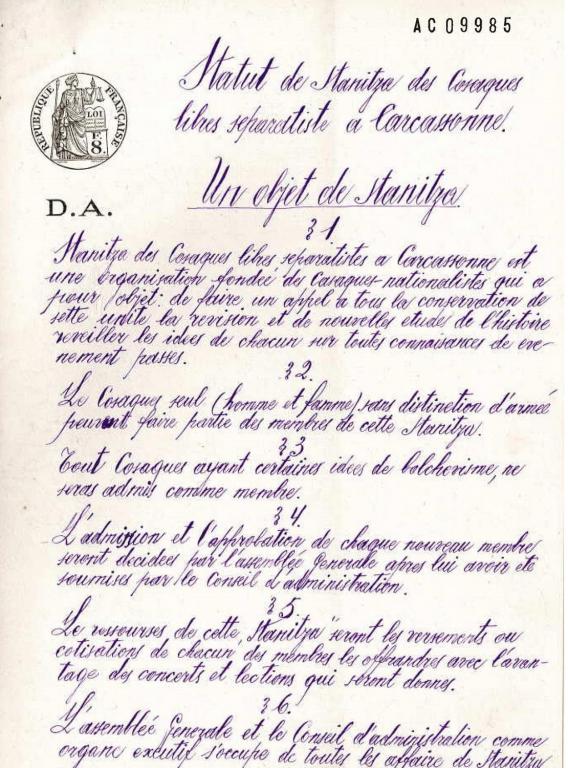 AC09985
Statut de Stanitza des Cosaques
libres separatiste a Carcassonne.
RÉPUBLIQUE FRANÇAISE
LOI
F
8.
D.A.
Un objet de Stanitza
§ 1
Stanitza des Cosaques libres separatistes a Carcassonne est
une organisation fondée de Casaques-nationalistes qui a
pour objet: de faire un appel a tous la conservation de
sette unite la revision et de nouvelles etude de l'histoire
reveiller les idees de chacun sur toutes connaisances de eve-
nement passes.
§ 2.
Le Cosaques seul (homme et famme) sans distinction d'armeé
peuvent faire partie des membres de cette Stanitza.
§ 3
Tout Cosaques ayant certaines idees de bolchevisme, ne
seras admis comme membre.
§ 4
L'admission et l'approbation de chaque nouveau membre
seront decidees par l'assemblée Generale apres lui avoir eté
soumises par le Conseil d'administration.
§ 5.
Le ressourses de cette „Stanitza" seront les versements ou
cotisations de chacun des membres les offrandres avec l'avan-
tage des concerts et lections qui seront donnes.
§ 6.
L'assemblée Generale et le Conseil d'administration comme
organe excutif s'occupe de toutes les affaire de Stanitza